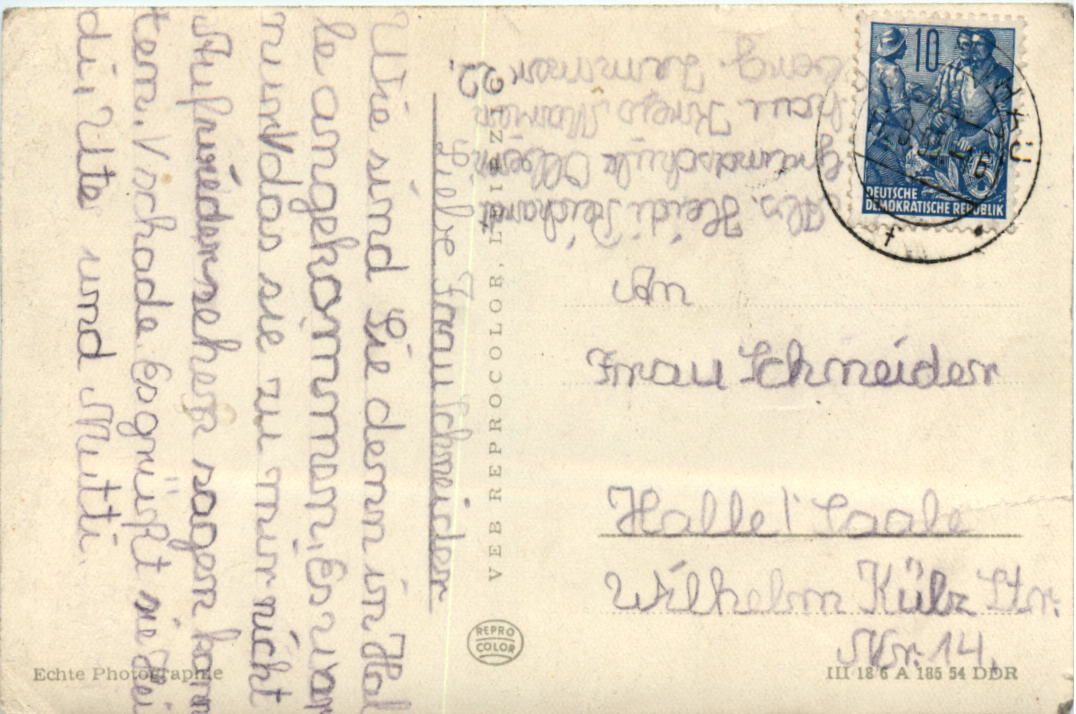 Liebe Frau Schneider
Wie sind Sie denn in Hal
le angekommen. Es war
nur das sie zu mir nicht
Aufwiedersehen sagen kom
ten. Schade Es grüßt sie Hei
di, Ute und Mutti.
Abs. Heidi Reichard
Grundschule
Kreis
22.
10
DEUTSCHE
DEMOKRATISCHE REPUBLIK
An
Frau Schneider
Halle/ Saale
Wilhelm Külz Str.
Nr. 14.
VEB REPROCOLOR, LEIPZIG
REPRO
COLOR
Echte Photographie
III 18 6 A 185 54 DDR